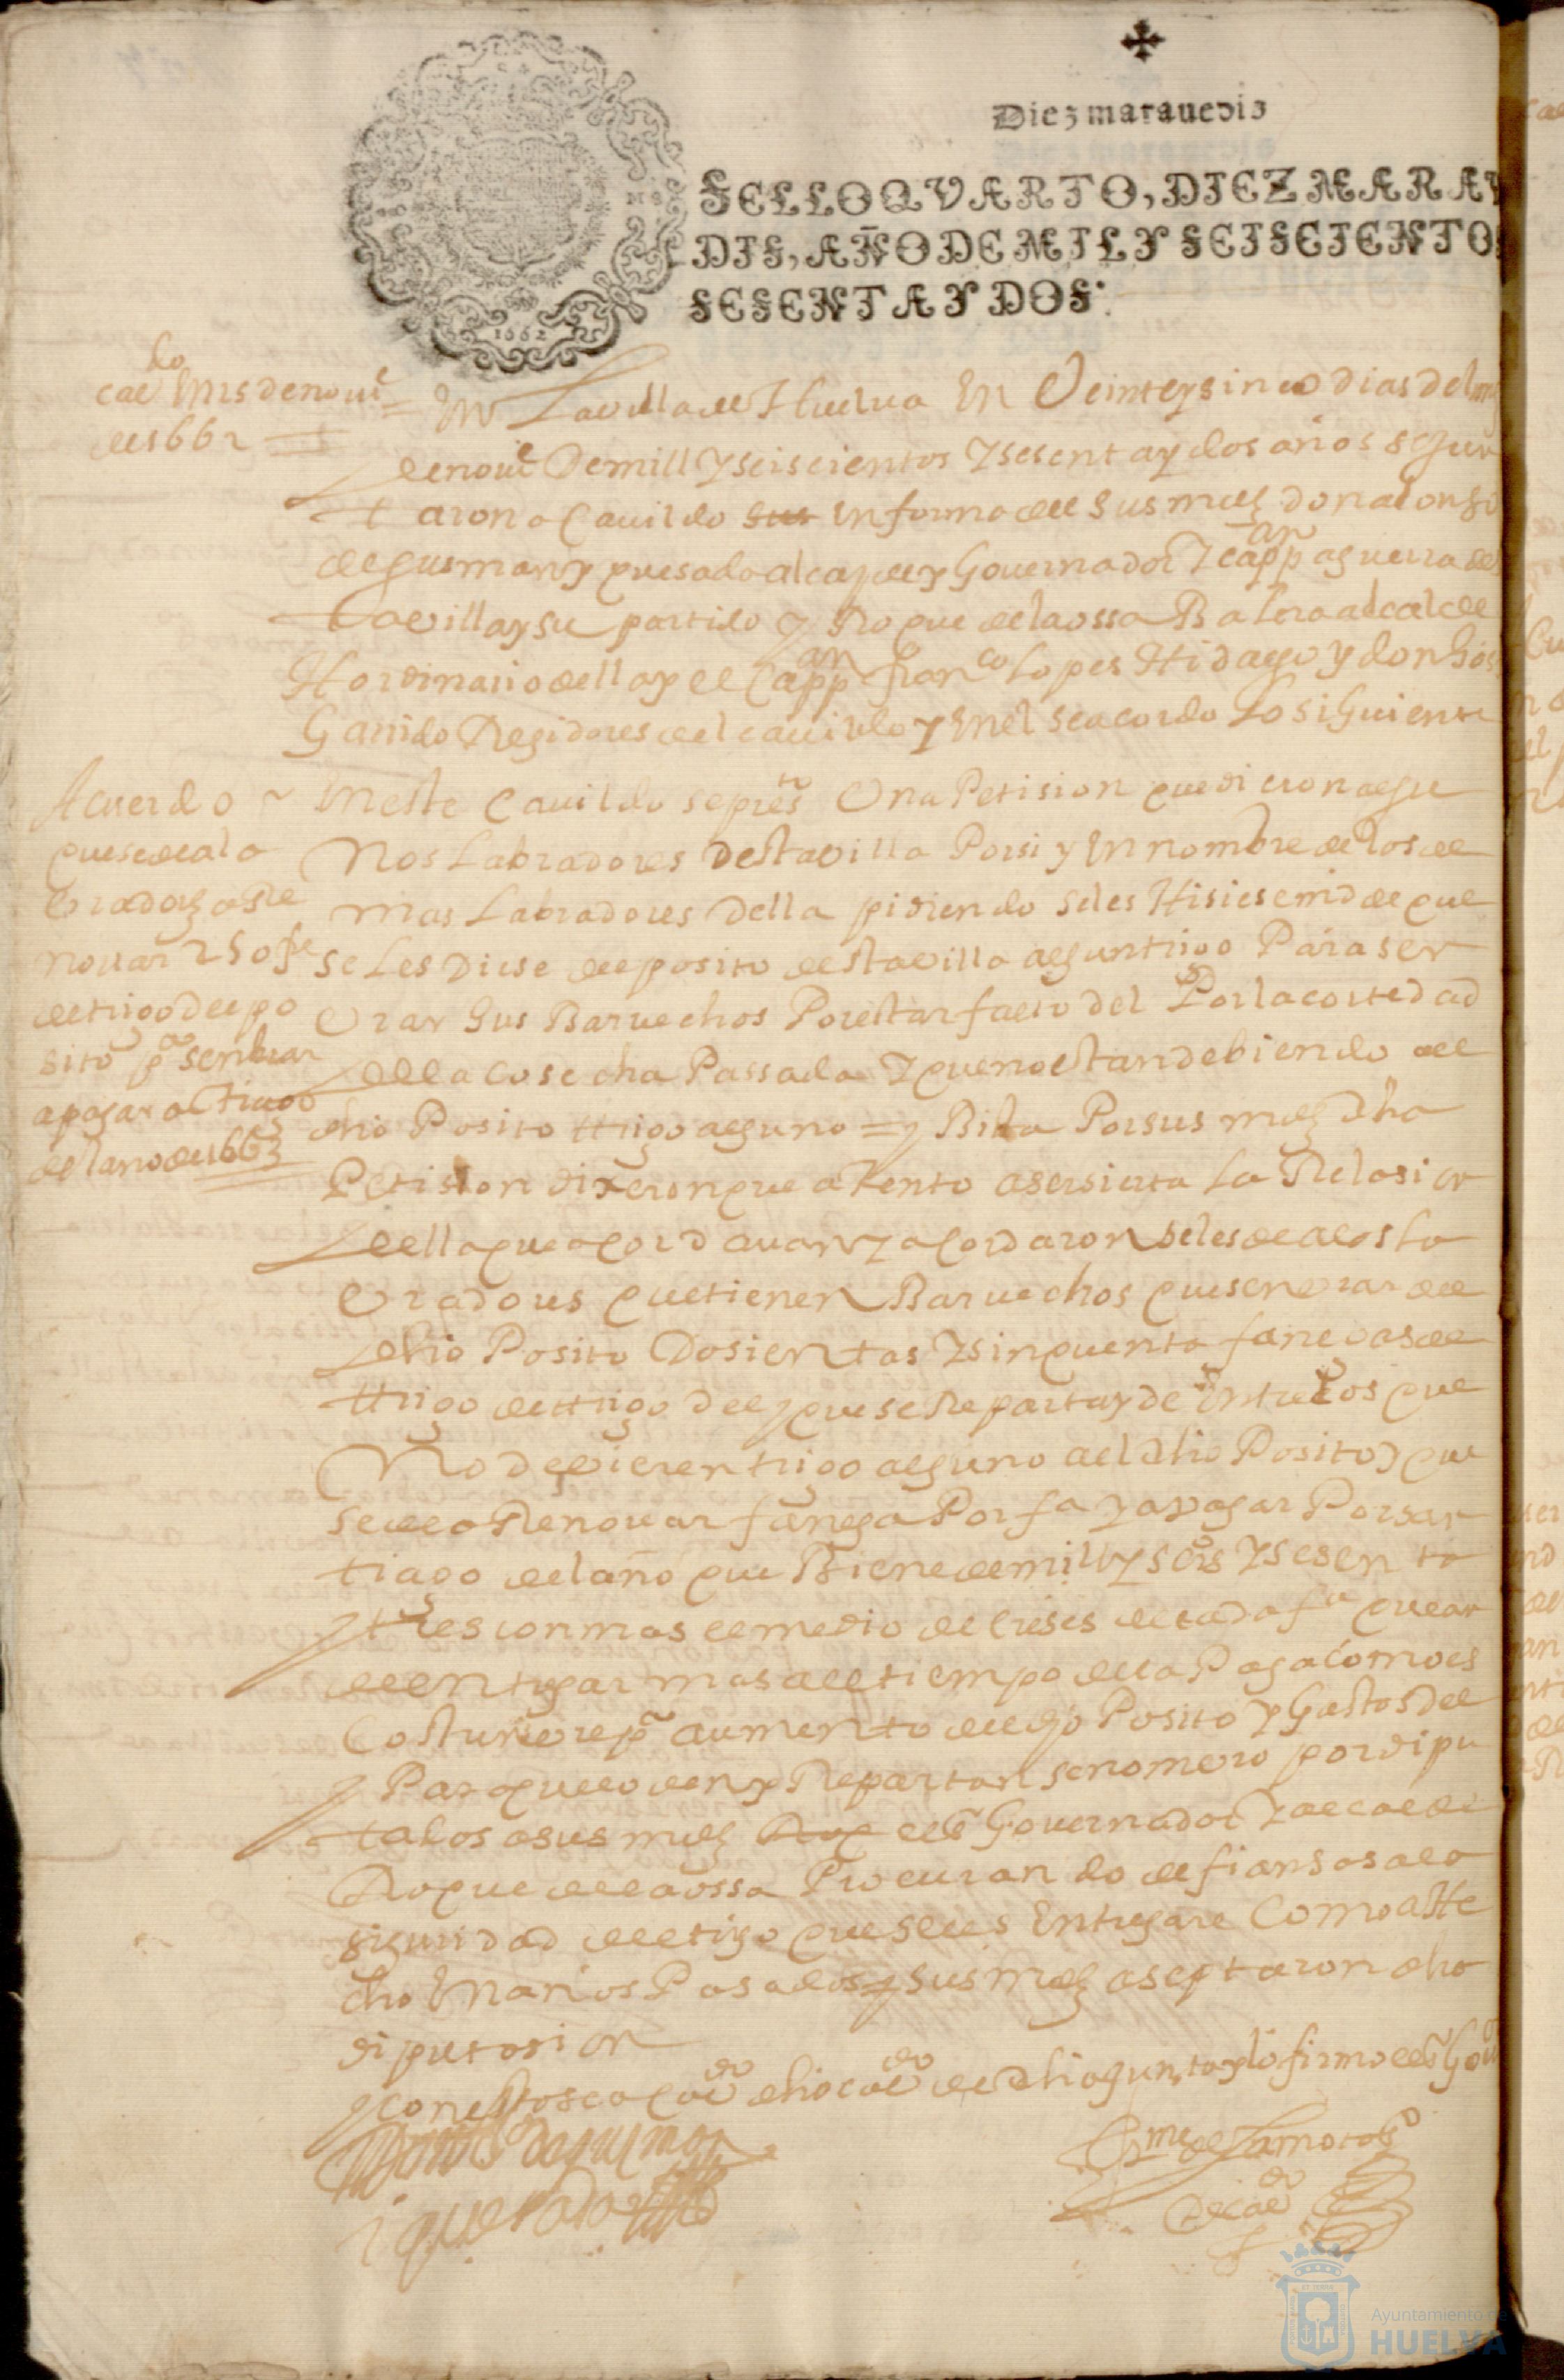 Diez marauedis
SELLO QVARTO, DIEZ MARAV
DIS, AÑO DE MIL Y SEISCIENTOS
SESENTA Y DOS.
1662
cau do en 25 de nou e
de 1662
En La villa de Huelua En Veinte y sinco dias del
de nou e De mill y seiscientos y sesenta y dos años se jun
taron a Cauildo En forma de sus mds don alonso
de gusman y quesada alcayde y Gouernador y capp an a guerra de
La villa y su partido y Roque de la ossa alcalde
Hordinario della y el Capp an fran co Lopes Hidalgo y don
Garrido Regidores del cauildo y En el se acordo Lo siguiente
Acuerdo
que se de a la
bradors a Re
nouar 250 f s
de trigo del po
sito p a senbrar
a pagar a Stiago
del año de 1663
En este Cauildo se pres to Una Petision que dieron algu
nos Labradores desta villa Por si y En nombre de los de
mas Labradores della pidiendo se les Hisiese md de que
se Les Diese del posito desta villa algun trigo Para sen
brar sus Baruechos Por estar falto del Por la cortedad
de la cosecha Passada y que no estan debiendo al
dho Posito trigo alguno = y Bista Por sus mds dha
Petision dixeron que atento a ser sierta La Relasion
della que acordauan y acordaron se les de a los La
bradores que tienen Baruechos que senbrar del
dho Posito Dosientas y sinquenta fanegas de
trigo de trigo del y que se Reparta y de Entre Los que
No debieren trigo alguno al dho Posito y que
se de a Renouar fanega Por f a y a pagar Por san
tiago del año que Biene de mill y seis os y sesenta
y tres con mas el medio de creses de cada f a que an
de entregar mas al tiempo de la Paga como es
Costumbre p a aumento del dho Posito y Gastos del
y Para que lo den y Repartan se nombro por dipu
tados a sus mds el s r Gouernador y alcalde
Roque de la ossa Procurando de fiansas a la
siguridad del trigo que se les Entregare Como a He
cho En años Pasados y sus mds aseptaron dha
diputasion
y con esto se aca uo do dho cau do de dha junta y lo firmo el s r Gou or
Don Al o de gusman
i quesada
De cau do
Ayuntamiento de
HUELVA